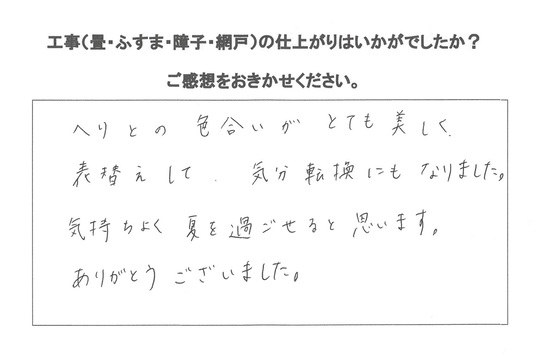 工事（畳・ふすま・障子・網戸）の仕上がりはいかがでしたか？
ご感想をおきかせください。
へりとの色合いがとても美しく、
表替えして、気分転換にもなりました。
気持ちよく夏を過ごせると思います。
ありがとうございました。